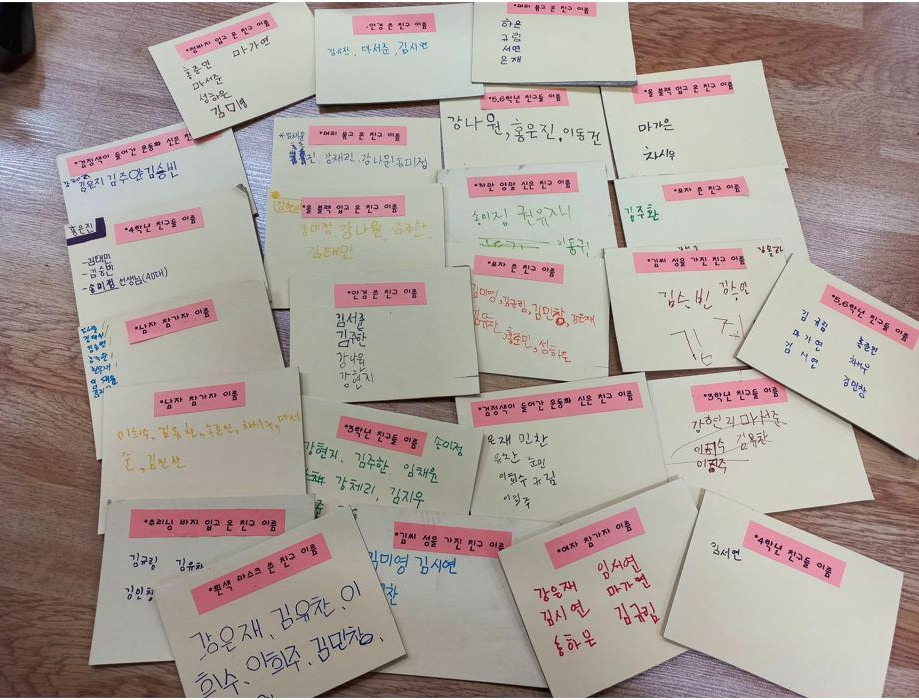 *청바지 입고 온 친구 이름
홍준민 마가연
마서준
성하음
김미영
*안경 쓴 친구 이름
김유찬, 마서준, 김시연
*머리 묶고 온 친구 이름
하은
규림
서연
은재
*5,6학년 친구들 이름
강나원, 홍은진, 이동건
*올 블랙 입고 온 친구 이름
마가은
차시우
*검정색이 들어간 운동화 신은 친구
강은지 김주안 김승빈
*머리 묶고 온 친구 이름
진, 강채리, 강나원 송미정
*하얀 양말 신은 친구 이름
송미정 권유지
*모자 쓴 친구 이름
김주환
홍은진
*4학년 친구들 이름
-김태민
-김승빈
-송미정 선생님(40대)
*올 블랙 입고 온 친구 이름
송미정, 강나원, 김주한,
김태민
*모자 쓴 친구 이름
김미영, 김규림, 김민찬, 강은재
김유찬, 홍준민, 성하음
*김씨 성을 가진 친구 이름
김수빈
*5,6학년 친구들 이름
김규림 홍준민
마가연 차시우
김시연 김민찬
*남자 참가자 이름
*안경 쓴 친구 이름
김서준
김주한
강나원
강현지
*남자 참가자 이름
이희수, 김유찬, 홍준민, 차시우, 마서
준, 김민찬
*3학년 친구들 이름
강현지, 김주한, 임채윤 송미정
강체리, 김지우
*검정색이 들어간 운동화 신은 친구 이름
은재 민찬
유찬 준민
이희수 규림
이희주
*3학년 친구들 이름
강현지 마서준
이희수 김유찬
*추리닝 바지 입고 온 친구 이름
김규림 김유찬
김민찬
*흰색 마스크 쓴 친구 이름
강은재, 김유찬, 이
희수, 이희주, 김민찬,
*김씨 성을 가진 친구 이름
김미영 김시연
찬
*여자 참가자 이름
강은재 임서연
김시연 마가연
송하은 김규림
*4학년 친구들 이름
임서연